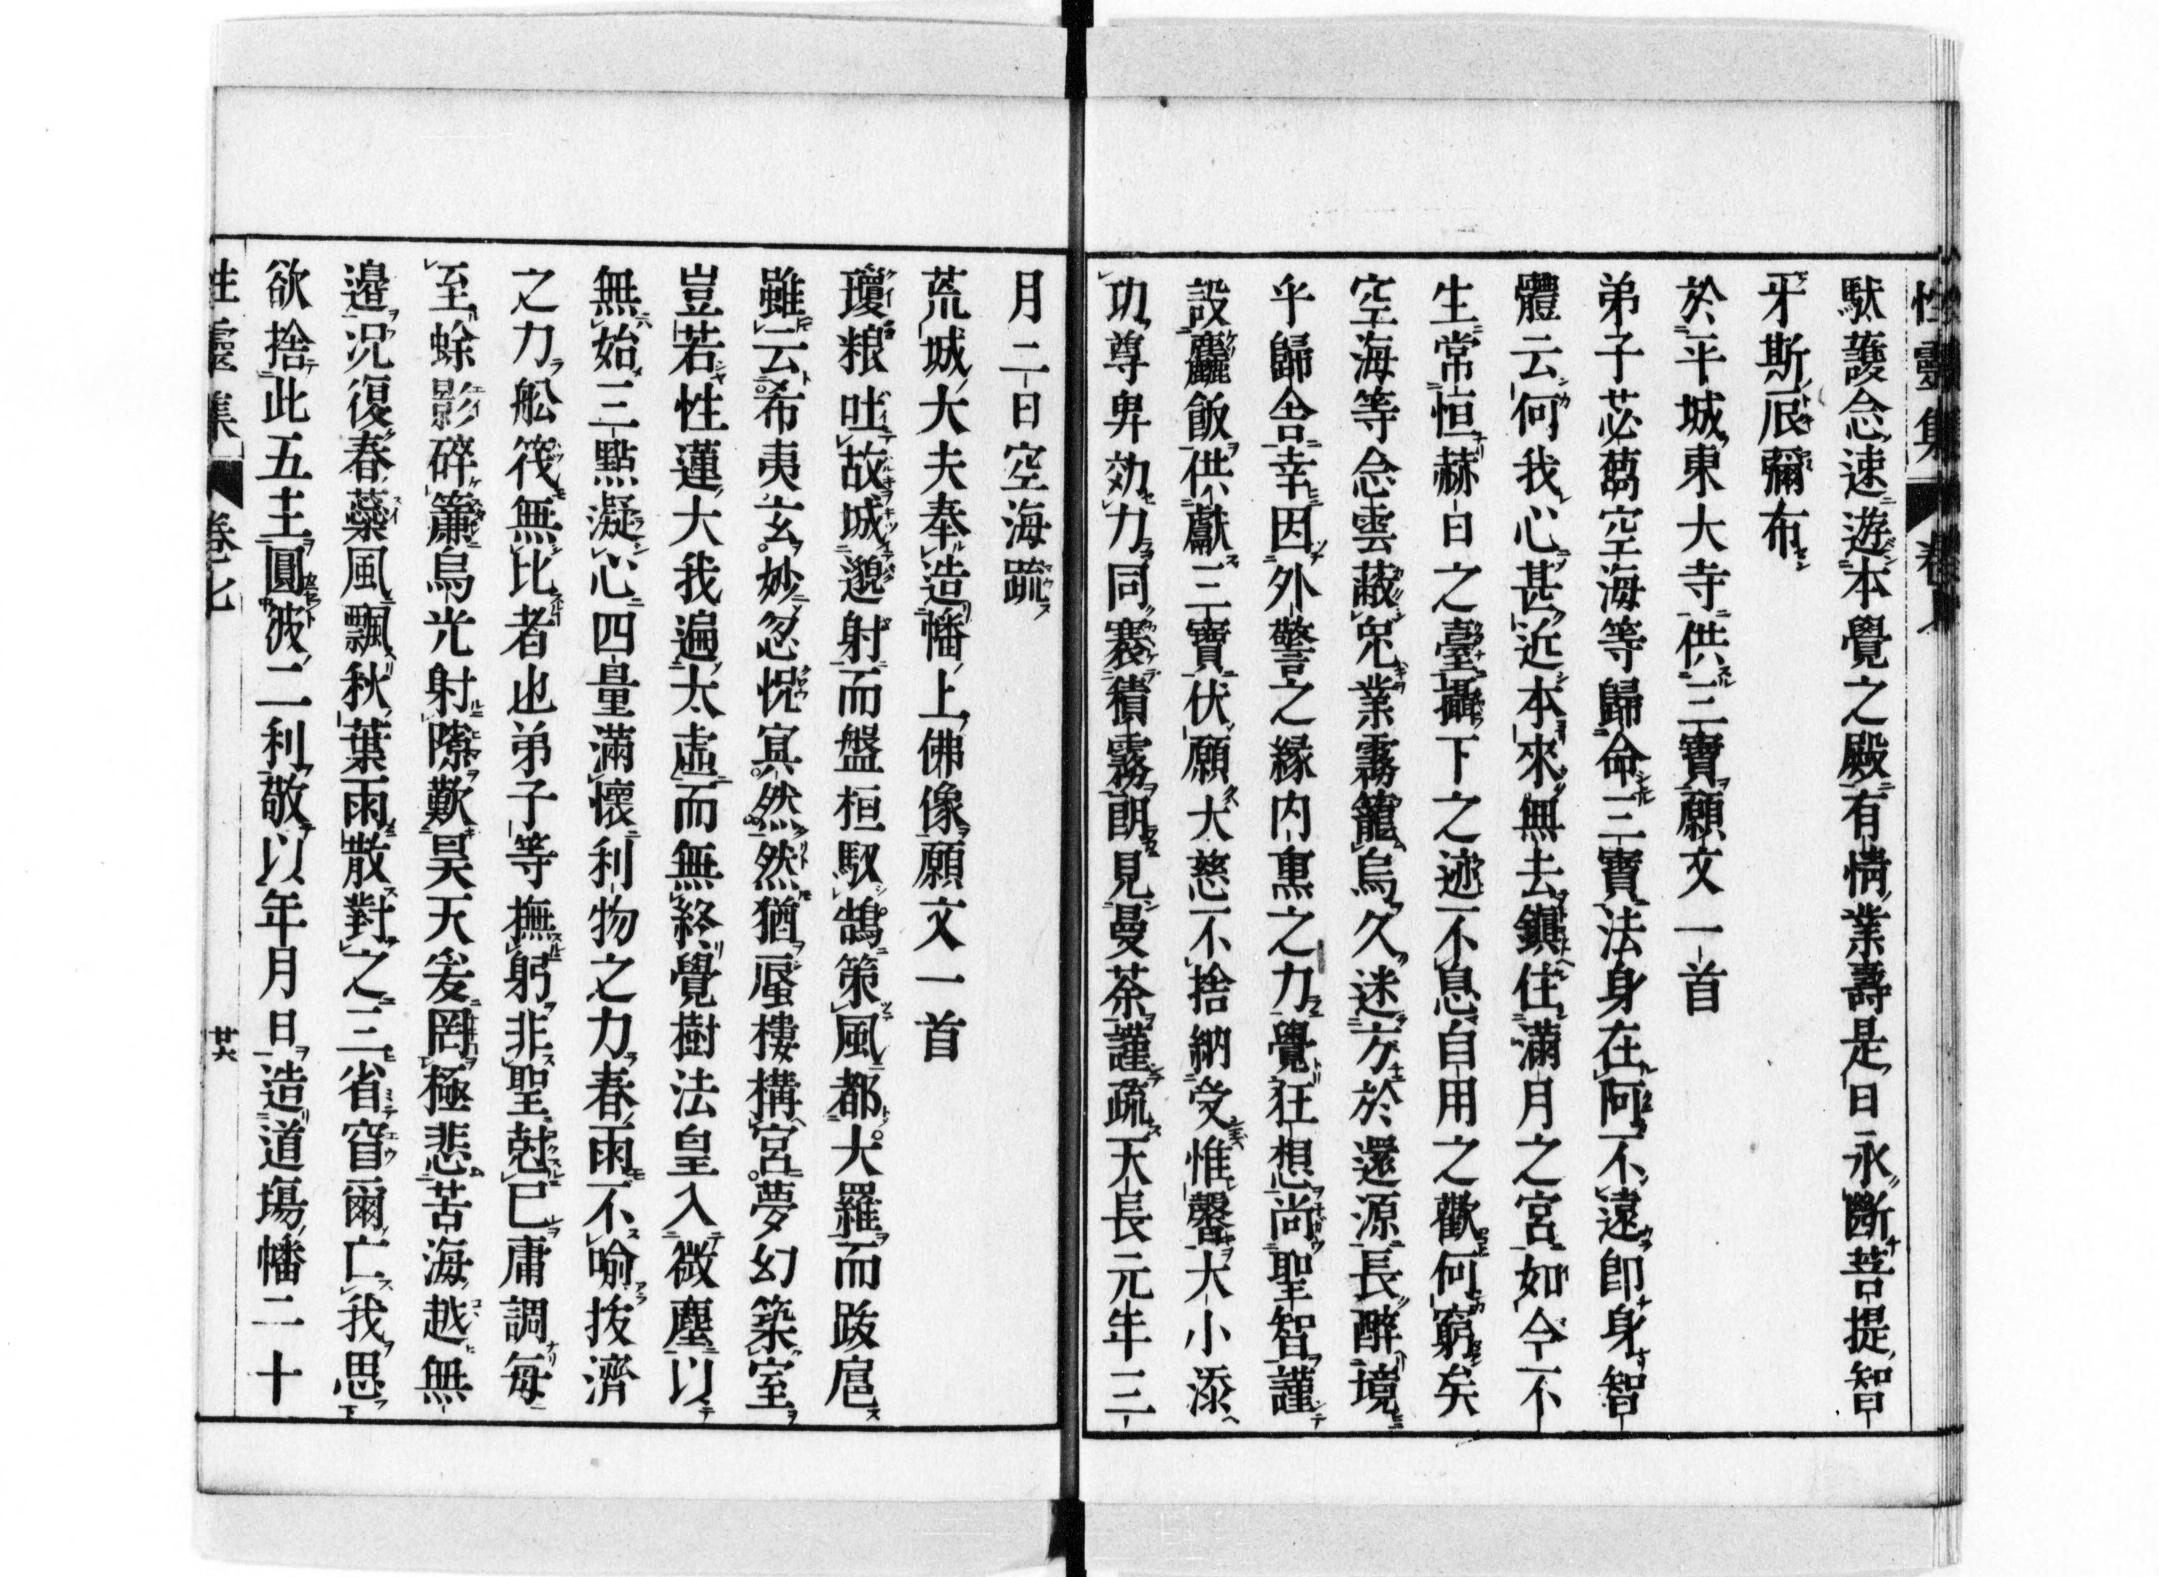 性靈集 卷七
馱護念速遊本覺之殿有情業壽是日永斷菩提智
牙斯辰彌布
於平城東大寺供三寶願文一首
弟子苾蒭空海等歸命三寶法身在阿不遠即身智
體云何我心甚近本來無去鎭住滿月之宮如今不
生常恒赫日之臺攝下之迹不息自用之歡何窮矣
空海等念雲蔽兇業霧籠烏久迷方於還源長醉境
乎歸舍幸因外警之緣内熏之力覺狂想尚聖智謹
設麤飯供獻三寶伏願大慈不捨納受惟馨大小添
功尊卑効力同褰積霧朗見曼荼謹疏天長元年三
月二日空海疏
荒城大夫奉造幡上佛像願文一首
瓊粮吐故城邈射而盤桓馭鵠策風都大羅而跋扈
雖云希夷玄妙忽怳冥然然猶蜃樓構宮夢幻築室
豈若性蓮大我遍太虛而無終覺樹法皇入微塵以
無始三點凝心四量滿懷利物之力春雨不喻拔濟
之力舩筏無比者也弟子等撫躬非聖尅己庸調每
至蜍影碎簾烏光射隙歎昊天爰罔極悲苦海越無
邉况復春蘂風飄秋葉雨散對之三省窅爾亡我思
欲捨此五主圓彼二利敬以年月日造道塲幡二十
性靈集 卷七 廿六